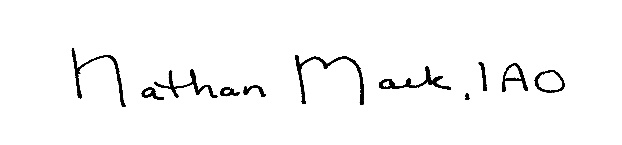 Nathan Mack, IAO